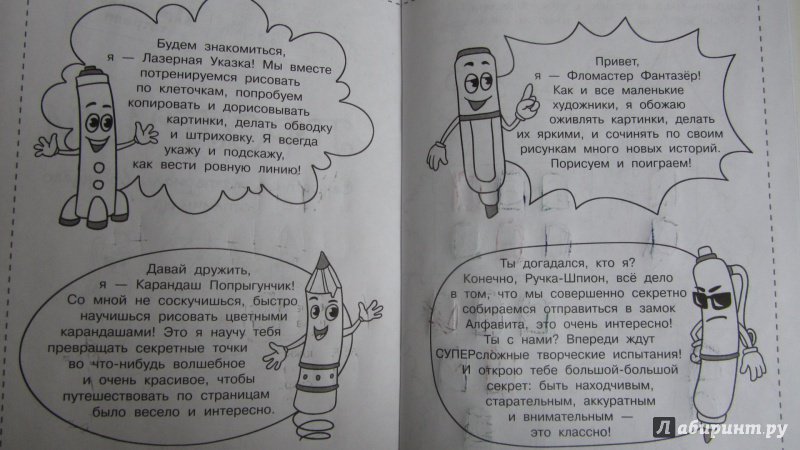 Будем знакомиться,
я — Лазерная Указка! Мы вместе
потренируемся рисовать
по клеточкам, попробуем
копировать и дорисовывать
картинки, делать обводку
и штриховку. Я всегда
укажу и подскажу,
как вести ровную линию!
Давай дружить,
я — Карандаш Попрыгунчик!
Со мной не соскучишься, быстро
научишься рисовать цветными
карандашами! Это я научу тебя
превращать секретные точки
во что-нибудь волшебное
и очень красивое, чтобы
путешествовать по страницам
было весело и интересно.
Привет,
я — Фломастер Фантазёр!
Как и все маленькие
художники, я обожаю
оживлять картинки, делать
их яркими, и сочинять по своим
рисункам много новых историй.
Порисуем и поиграем!
Ты догадался, кто я?
Конечно, Ручка-Шпион, всё дело
в том, что мы совершенно секретно
собираемся отправиться в замок
Алфавита, это очень интересно!
Ты с нами? Впереди ждут
СУПЕРсложные творческие испытания!
И открою тебе большой-большой
секрет: быть находчивым,
старательным, аккуратным
и внимательным —
это классно!
Лабиринт.ру